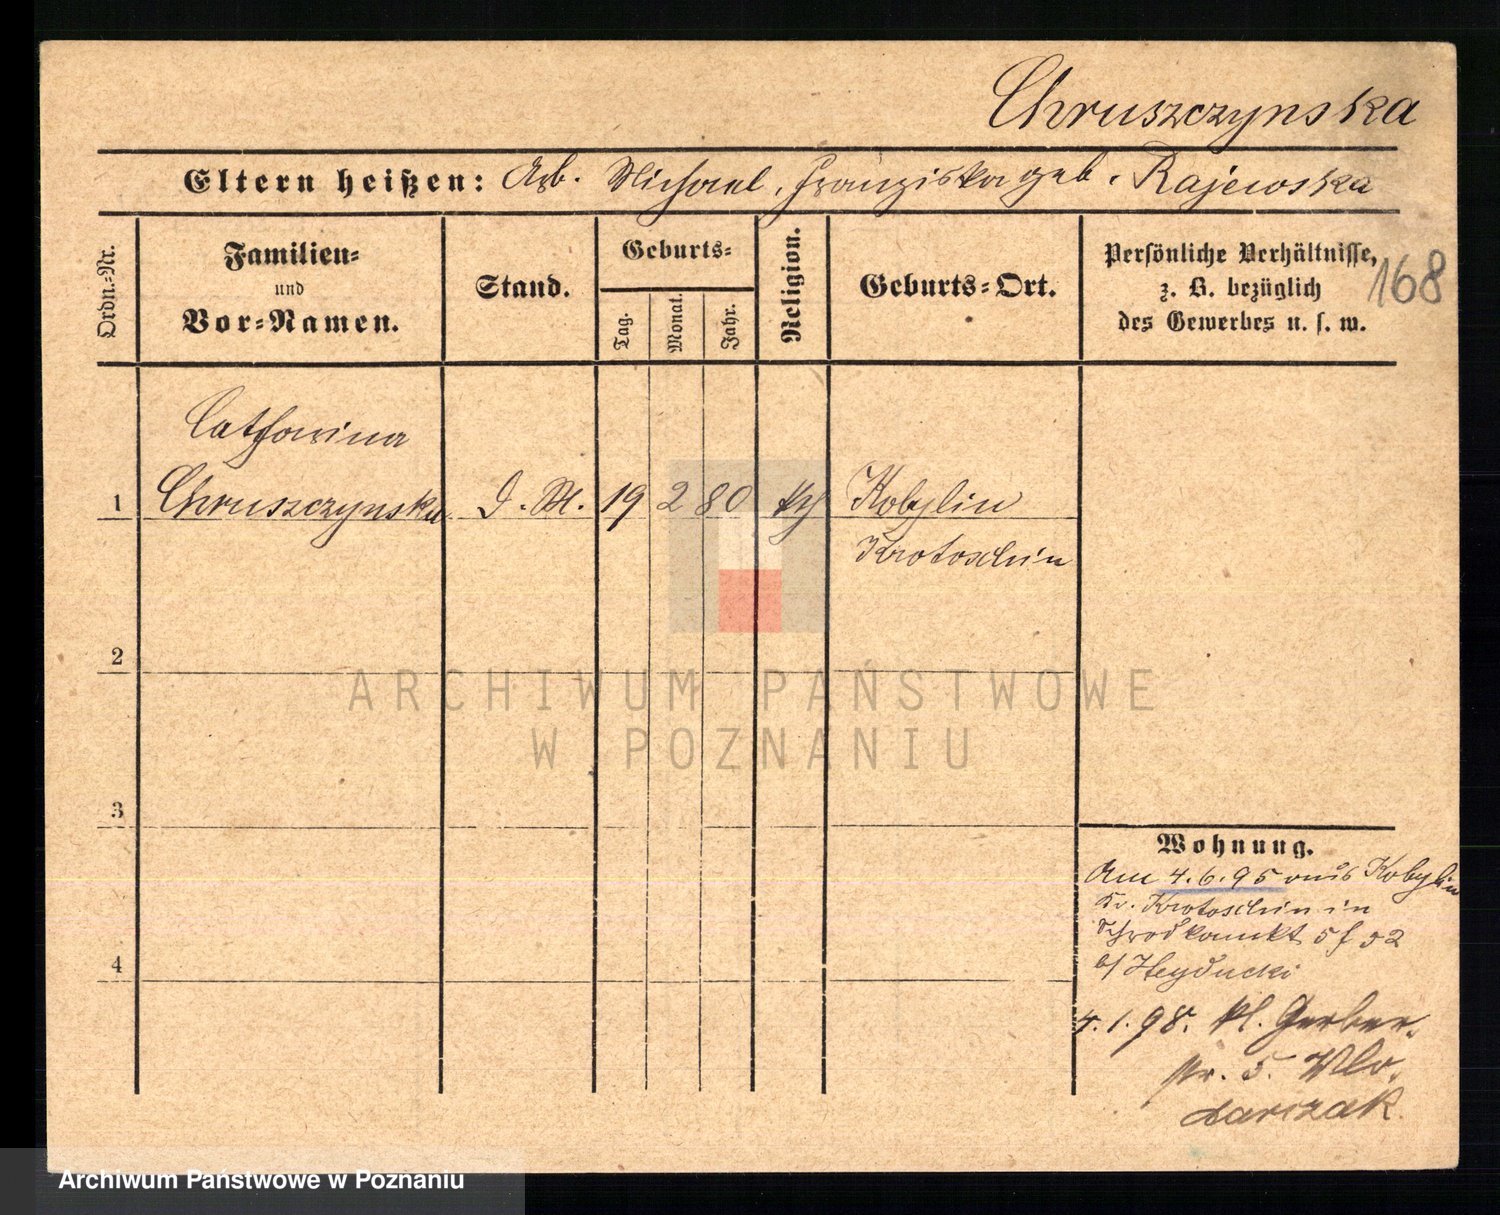 Chruszczynska
Eltern heißen: Arb. Michael, Franziska geb. Rajewska
Ordn.-Nr.
Familien-
und
Vor-Namen.
Stand.
Geburts-
Tag.
Monat.
Jahr.
Religion.
Geburts-Ort.
Persönliche Verhältnisse,
z. B. bezüglich
des Gewerbes u. s. w.
168
Catharina
1 Chruszczynska D. M. 19 2 80 kth Kobylin
Krotoschin
2
3
4
Wohnung.
Am 4.6.95 aus Kobylin
Kr. Krotoschin in
5 52
b/ Heyducki
4.1.98. kl. Gerber-
str. 5. Wlo-
darczak.
ARCHIWUM PAŃSTWOWE
W POZNANIU
Archiwum Państwowe w Poznaniu